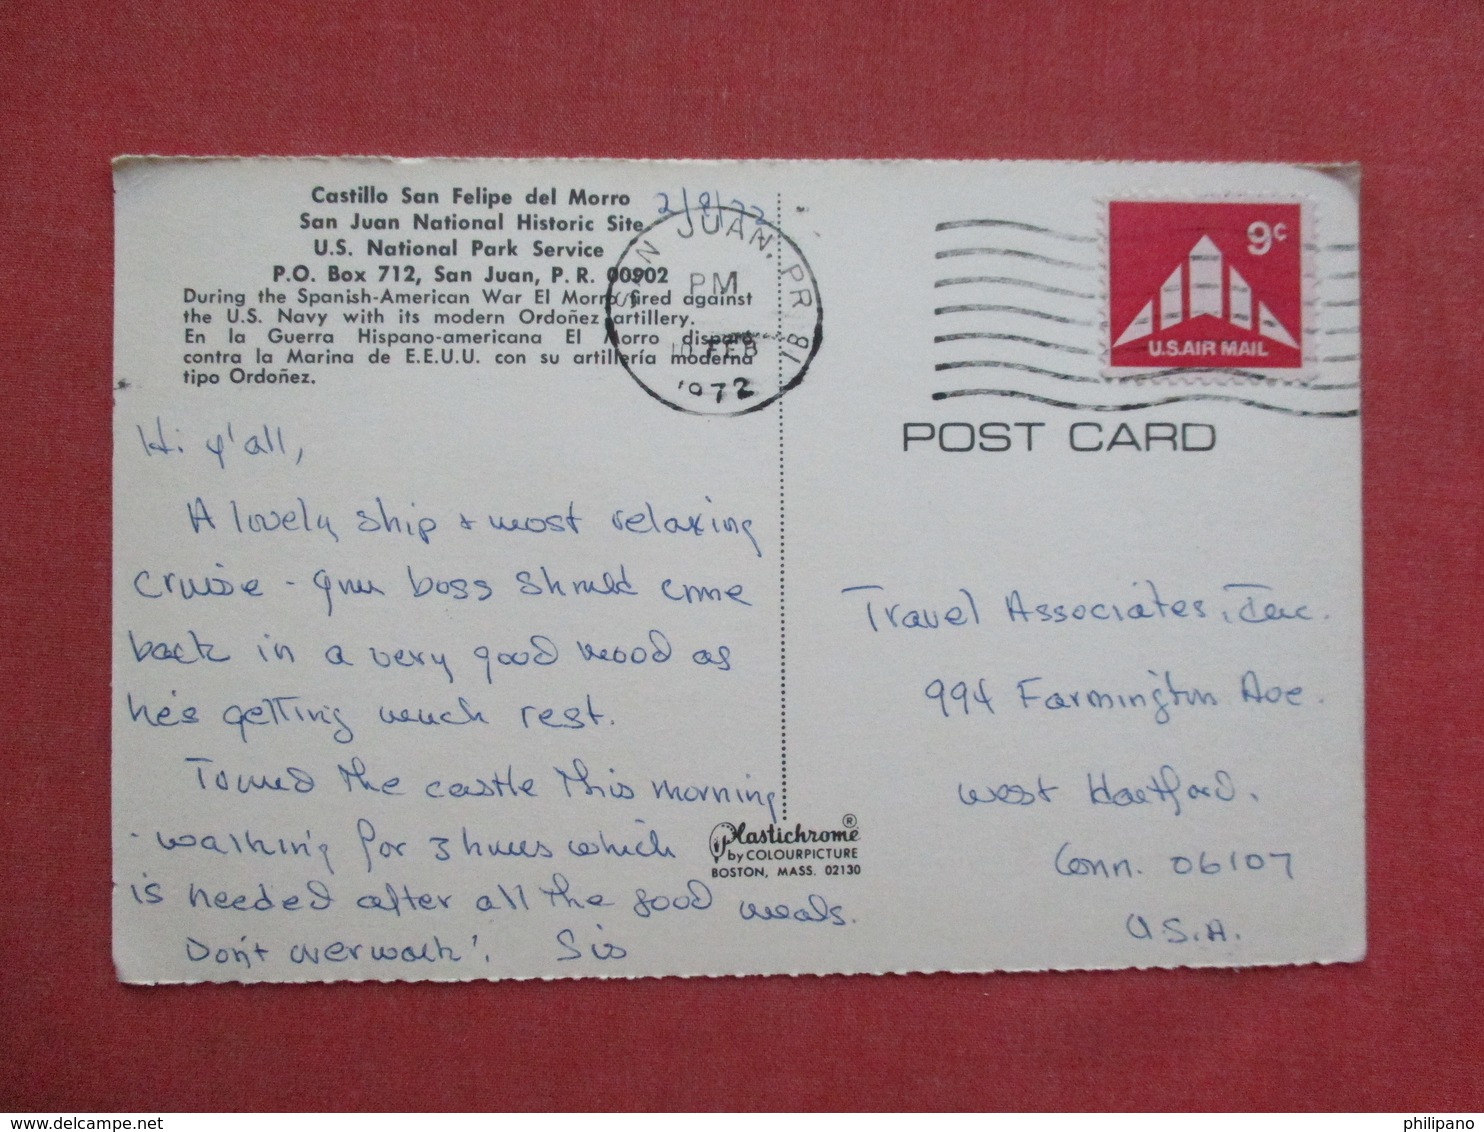 Castillo San Felipe del Morro
San Juan National Historic Site
U.S. National Park Service
P.O. Box 712, San Juan, P.R. 00902
During the Spanish-American War El Morro fired against
the U.S. Navy with its modern Ordoñez artillery.
En la Guerra Hispano-americana El Morro disparó
contra la Marina de E.E.U.U. con su artillería moderna
tipo Ordoñez.
2/8/72
SAN JUAN, PR
PM
10 FEB
1972
181
9¢
U.S. AIR MAIL
POST CARD
Hi y'all,
A lovely ship & most relaxing
cruise - your boss should come
back in a very good mood as
he's getting much rest.
Toured the castle this morning
- walking for 3 hours which
is needed after all the good meals.
Don't overwork! Sis
Plastichrome®
by COLOURPICTURE
BOSTON, MASS. 02130
Travel Associates, Inc.
994 Farmington Ave.
West Hartford,
Conn. 06107
U.S.A.
delcampe.net
philipano